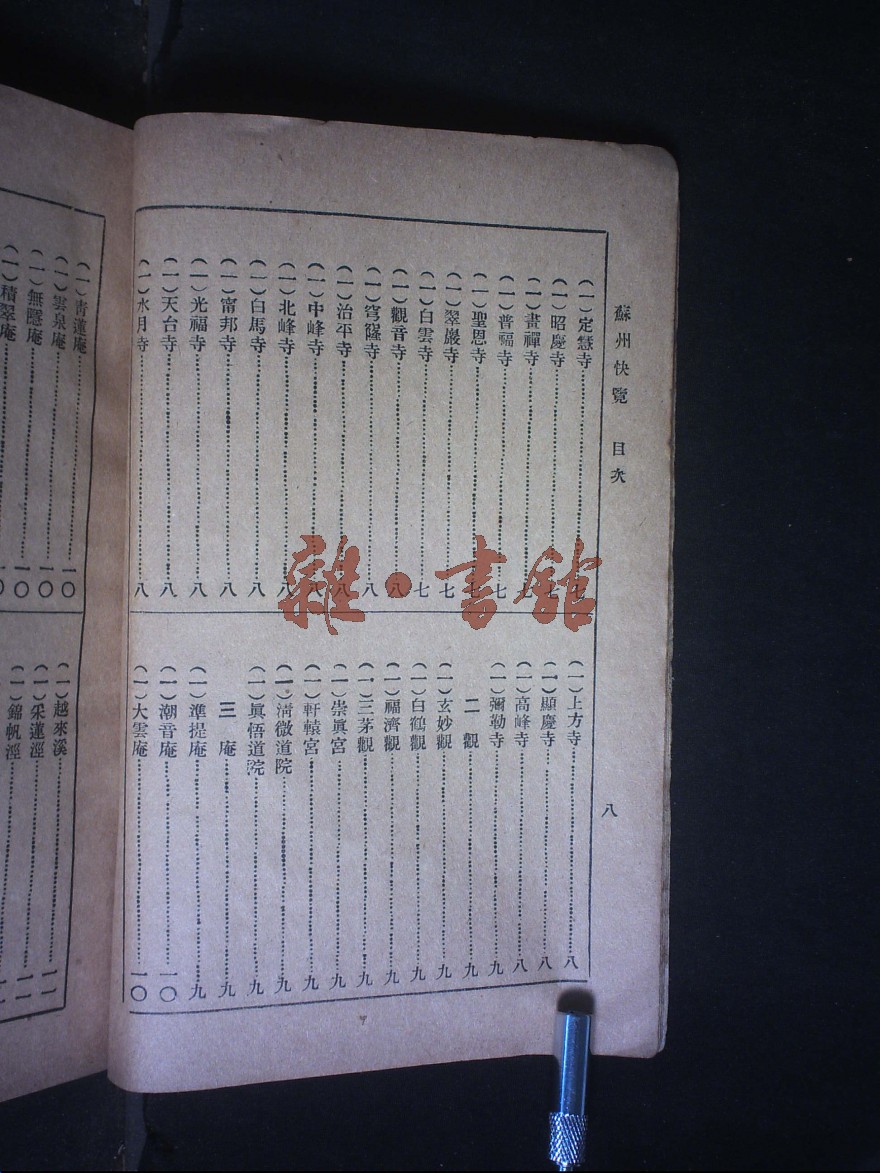 蘇州快覽 目次
八
(一)定慧寺……七
(一)昭慶寺……七
(一)畫禪寺……七
(一)普福寺……七
(一)聖恩寺……七
(一)翠巖寺……七
(一)白雲寺……七
(一)觀音寺……八
(一)穹窿寺……八
(一)治平寺……八
(一)中峰寺……八
(一)北峰寺……八
(一)白馬寺……八
(一)甯邦寺……八
(一)光福寺……八
(一)天台寺……八
(一)水月寺……八
(一)上方寺……八
(一)顯慶寺……八
(一)高峰寺……八
(一)彌勒寺……九
二 觀……九
(一)玄妙觀……九
(一)白鶴觀……九
(一)福濟觀……九
(一)三茅觀……九
(一)崇眞宮……九
(一)軒轅宮……九
(一)淸微道院……九
(一)眞悟道院……九
三 庵……九
(一)準提庵……九
(一)潮音庵……一〇
(一)大雲庵……一〇
(一)靑蓮庵……一〇
(一)雲泉庵……一〇
(一)無隱庵……一〇
(一)積翠庵……一〇
(一)越來溪……一一
(一)采蓮涇……一一
(一)錦帆涇……一一
雜·書館